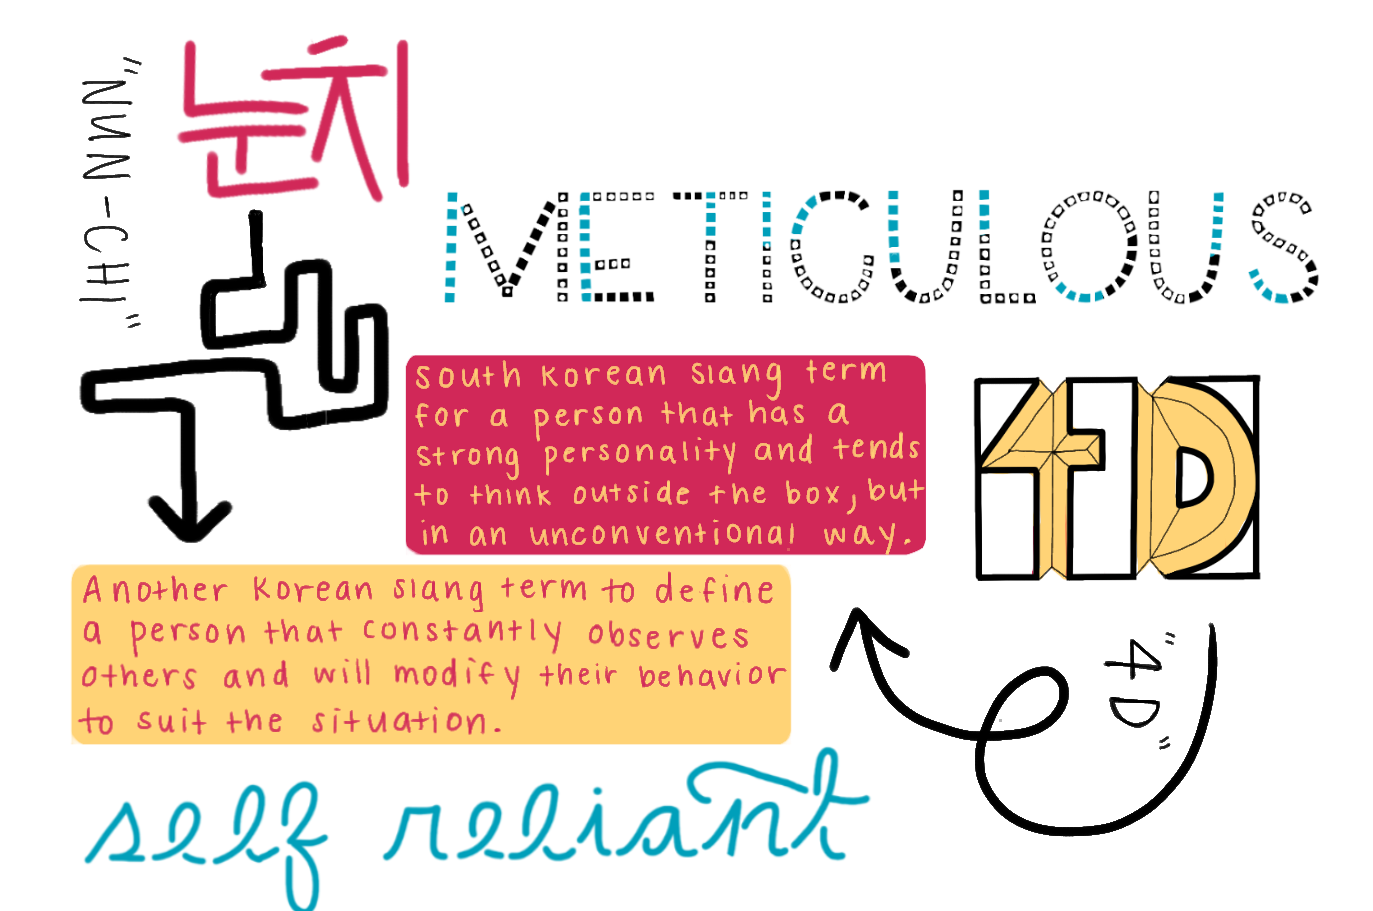 눈치
"NUN-CHI"
METICULOUS
South Korean slang term
for a person that has a
strong personality and tends
to think outside the box, but
in an unconventional way.
4D
"4D"
Another Korean slang term to define
a person that constantly observes
others and will modify their behavior
to suit the situation.
self reliant